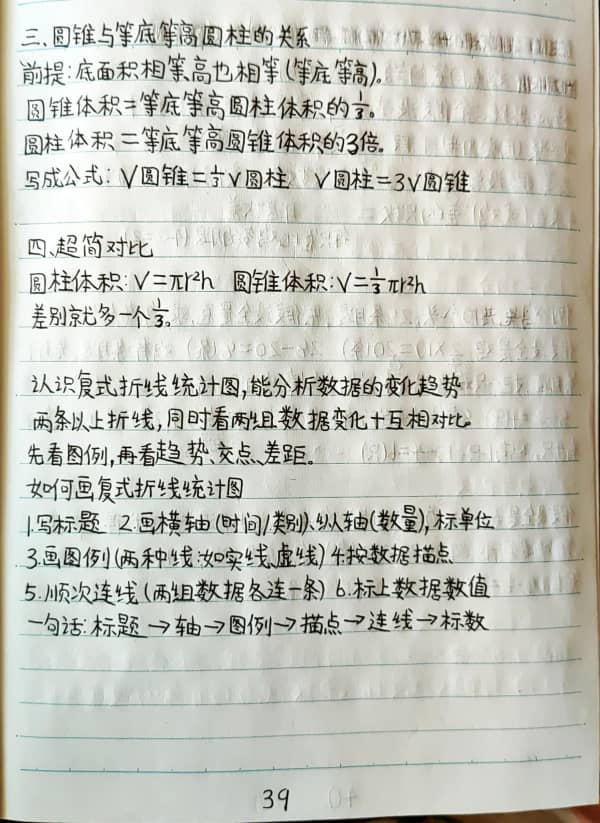 三、圆锥与等底等高圆柱的关系
前提:底面积相等、高也相等(等底等高)。
圆锥体积=等底等高圆柱体积的1/3。
圆柱体积=等底等高圆锥体积的3倍。
写成公式:V圆锥=1/3V圆柱 V圆柱=3V圆锥
四、超简对比
圆柱体积:V=πr²h 圆锥体积:V=1/3πr²h
差别就多一个1/3。
认识复式折线统计图,能分析数据的变化趋势
两条以上折线,同时看两组数据变化+互相对比。
先看图例,再看趋势、交点、差距。
如何画复式折线统计图
1.写标题 2.画横轴(时间/类别)、纵轴(数量),标单位
3.画图例(两种线:如实线、虚线) 4.按数据描点
5.顺次连线(两组数据各连一条) 6.标上数据数值
一句话:标题→轴→图例→描点→连线→标数
39